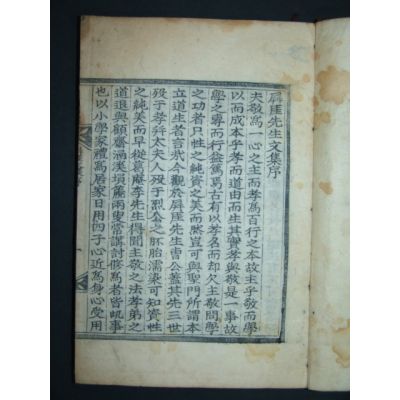 屛厓先生文集序
夫敬爲一心之主而孝爲百行之本故主乎敬而學
以而成本乎孝而道由而生其實孝與敬是一事故
學之專而行益篤焉古有以孝名而却欠主敬問學
之功者只性之純資之美而然豈可與聖門所謂本
立道生者言哉今觀於屛厓先生曺公蓋其先三世
歿于孝幷太夫人歿于烈叅之胚胎濡染可知資性
之純美而早從葛庵李先生得聞主敬之法孝弟之
道退與顧齋滿溪塤篪兩叟常講討修爲者皆此事
也以小學家禮爲居家日用四子心近爲身心受用